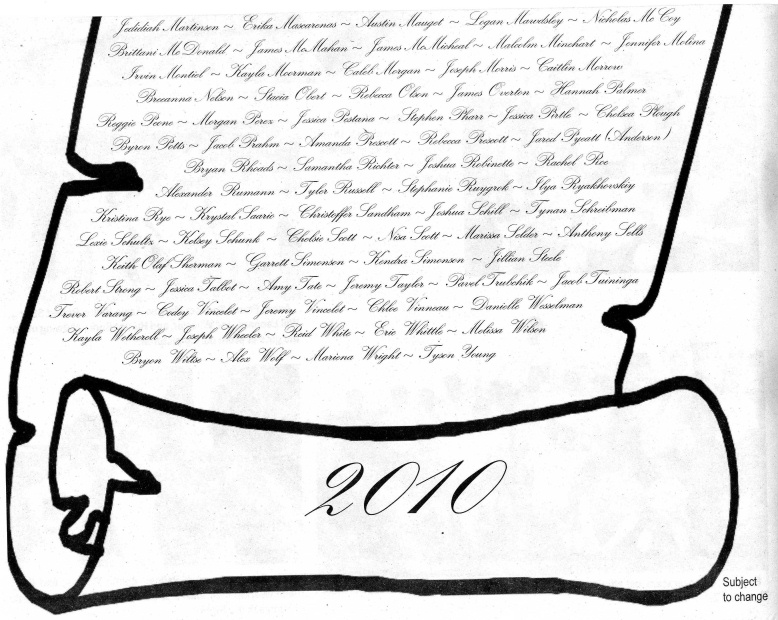 Jedidiah Martinson ~ Erika Mascarenas ~ Austin Mauget ~ Logan Mawdsley ~ Nicholas Mc Coy
Brittani Mc Donald ~ James Mc Mahan ~ James Mc Micheal ~ Malcolm Minehart ~ Jennifer Molina
Irvin Montiel ~ Kayla Moorman ~ Caleb Morgan ~ Joseph Morris ~ Caitlin Morrow
Breeanna Nelson ~ Stacia Obert ~ Rebecca Olson ~ James Overton ~ Hannah Palmer
Reggie Peone ~ Morgan Perez ~ Jessica Pestana ~ Stephen Pharr ~ Jessica Pirtle ~ Chelsea Plough
Byron Potts ~ Jacob Prahm ~ Amanda Prescott ~ Rebecca Prescott ~ Jared Pyeatt (Anderson)
Bryan Rhoads ~ Samantha Richter ~ Joshua Robinette ~ Rachel Roe
Alexander Rumann ~ Tyler Russell ~ Stephanie Ruygrok ~ Ilya Ryakhovskiy
Kristina Rye ~ Krystal Saarie ~ Christoffer Sandham ~ Joshua Schill ~ Tynan Schreibman
Lexie Schultz ~ Kelsey Schunk ~ Chelsie Scott ~ Nisa Scott ~ Marissa Selder ~ Anthony Sells
Keith Olaf Sherman ~ Garrett Simonson ~ Kendra Simonson ~ Jillian Steele
Robert Streng ~ Jessica Talbot ~ Amy Tate ~ Jeremy Taylor ~ Pavel Trubchik ~ Jacob Tuininga
Trevor Varang ~ Codey Vincelet ~ Jeremy Vincelet ~ Chloe Vinneau ~ Danielle Wesselman
Kayla Wetherell ~ Joseph Wheeler ~ Reid White ~ Eric Whittle ~ Melissa Wilson
Bryon Wiltse ~ Alex Wolf ~ Mariena Wright ~ Tyson Young
2010
Subject
to change